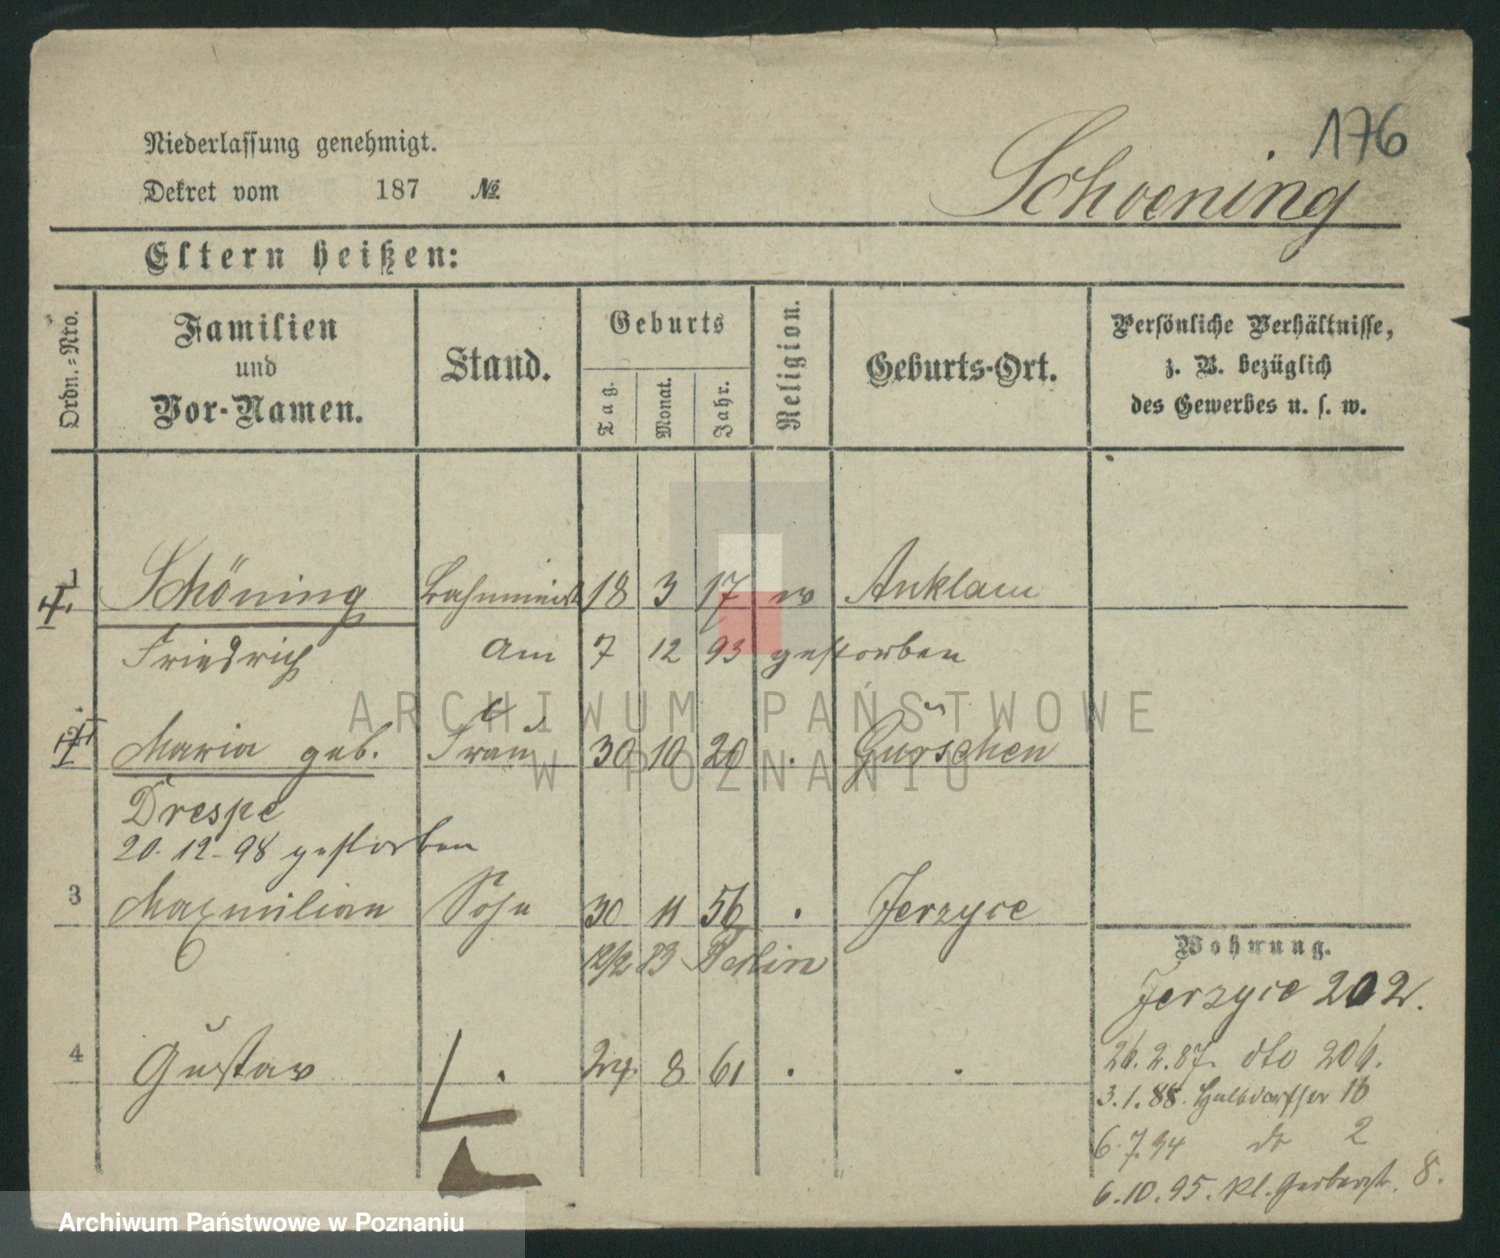 176
Niederlassung genehmigt.
Dekret vom 187 №
Schoening
Eltern heißen:
Ordn.=Nro.
Familien und Vor-Namen.
Stand.
Geburts
Tag. Monat. Jahr.
Religion.
Geburts-Ort.
Persönliche Verhältnisse, z. B. bezüglich des Gewerbes u. s. w.
1 Schöning Bahnmeist 18 3 17 ev Anklam
Friedrich am 7 12 93 gestorben
2 Maria geb. Frau 30 10 20 . Gurschen
Drespe
20.12.98 gestorben
3 Maxmilian Sohn 30 11 56 . Jerzyce
12/2 83 Berlin
Wohnung.
Jerzyce 202.
4 Gustav . 24. 8 61 . .
26.2.87. dto 206.
3.1.88. Halbdorfstr 16
6.7.94 do 2
6.10.95. Kl. Gerberstr. 8.
ARCHIWUM PAŃSTWOWE
W POZNANIU
Archiwum Państwowe w Poznaniu